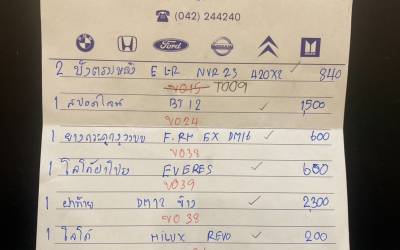 ☎ (042) 244240
Ford NISSAN
2 บังตรบหลัง E LR NVR 23 420x2 ✓ 840
VO15 TOO9
1 สปอตไลท์ BT12 1,500
VO24
1 ยางกระดูกงู F.RH EX DM16 ✓ 600
VO38
1 โลโก้ฝาโปรง EVERES ✓ 650
VO39
1 ฝาท้าย DM12 ✓ 2,300
VO38
1 โลโก้ HILUX REVO ✓ 200